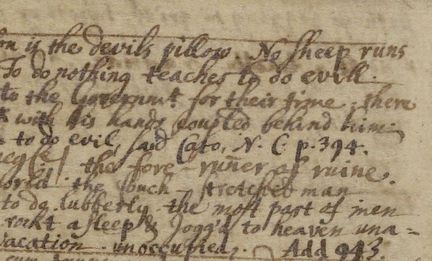 is the devils pillow. No sheep runs
To do nothing teaches to do evill.
to the Governmt for their time; there
with his hands coupled behind him.
to do evil, said Cato, N. C. p. 394.
the fore-runner of ruine.
world. the couch-stretched man
to do lubberly. the most part of men
rockt asleep & jogg'd to heaven una=
vacation. unoccupied. Add 943.